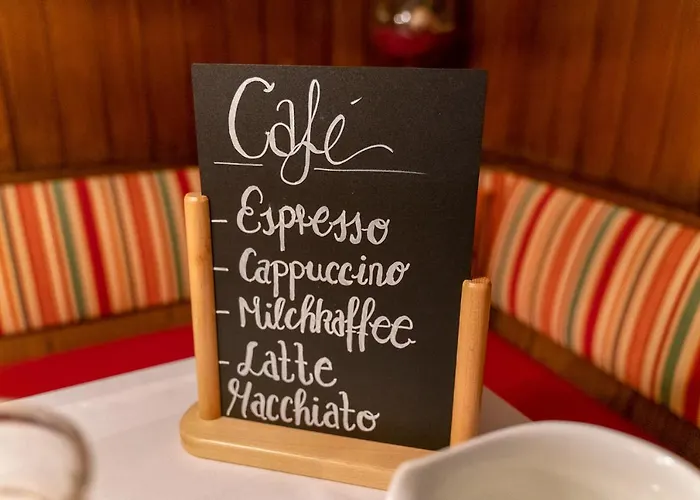 Café
- Espresso
- Cappuccino
- Milchkaffee
- Latte
Macchiato